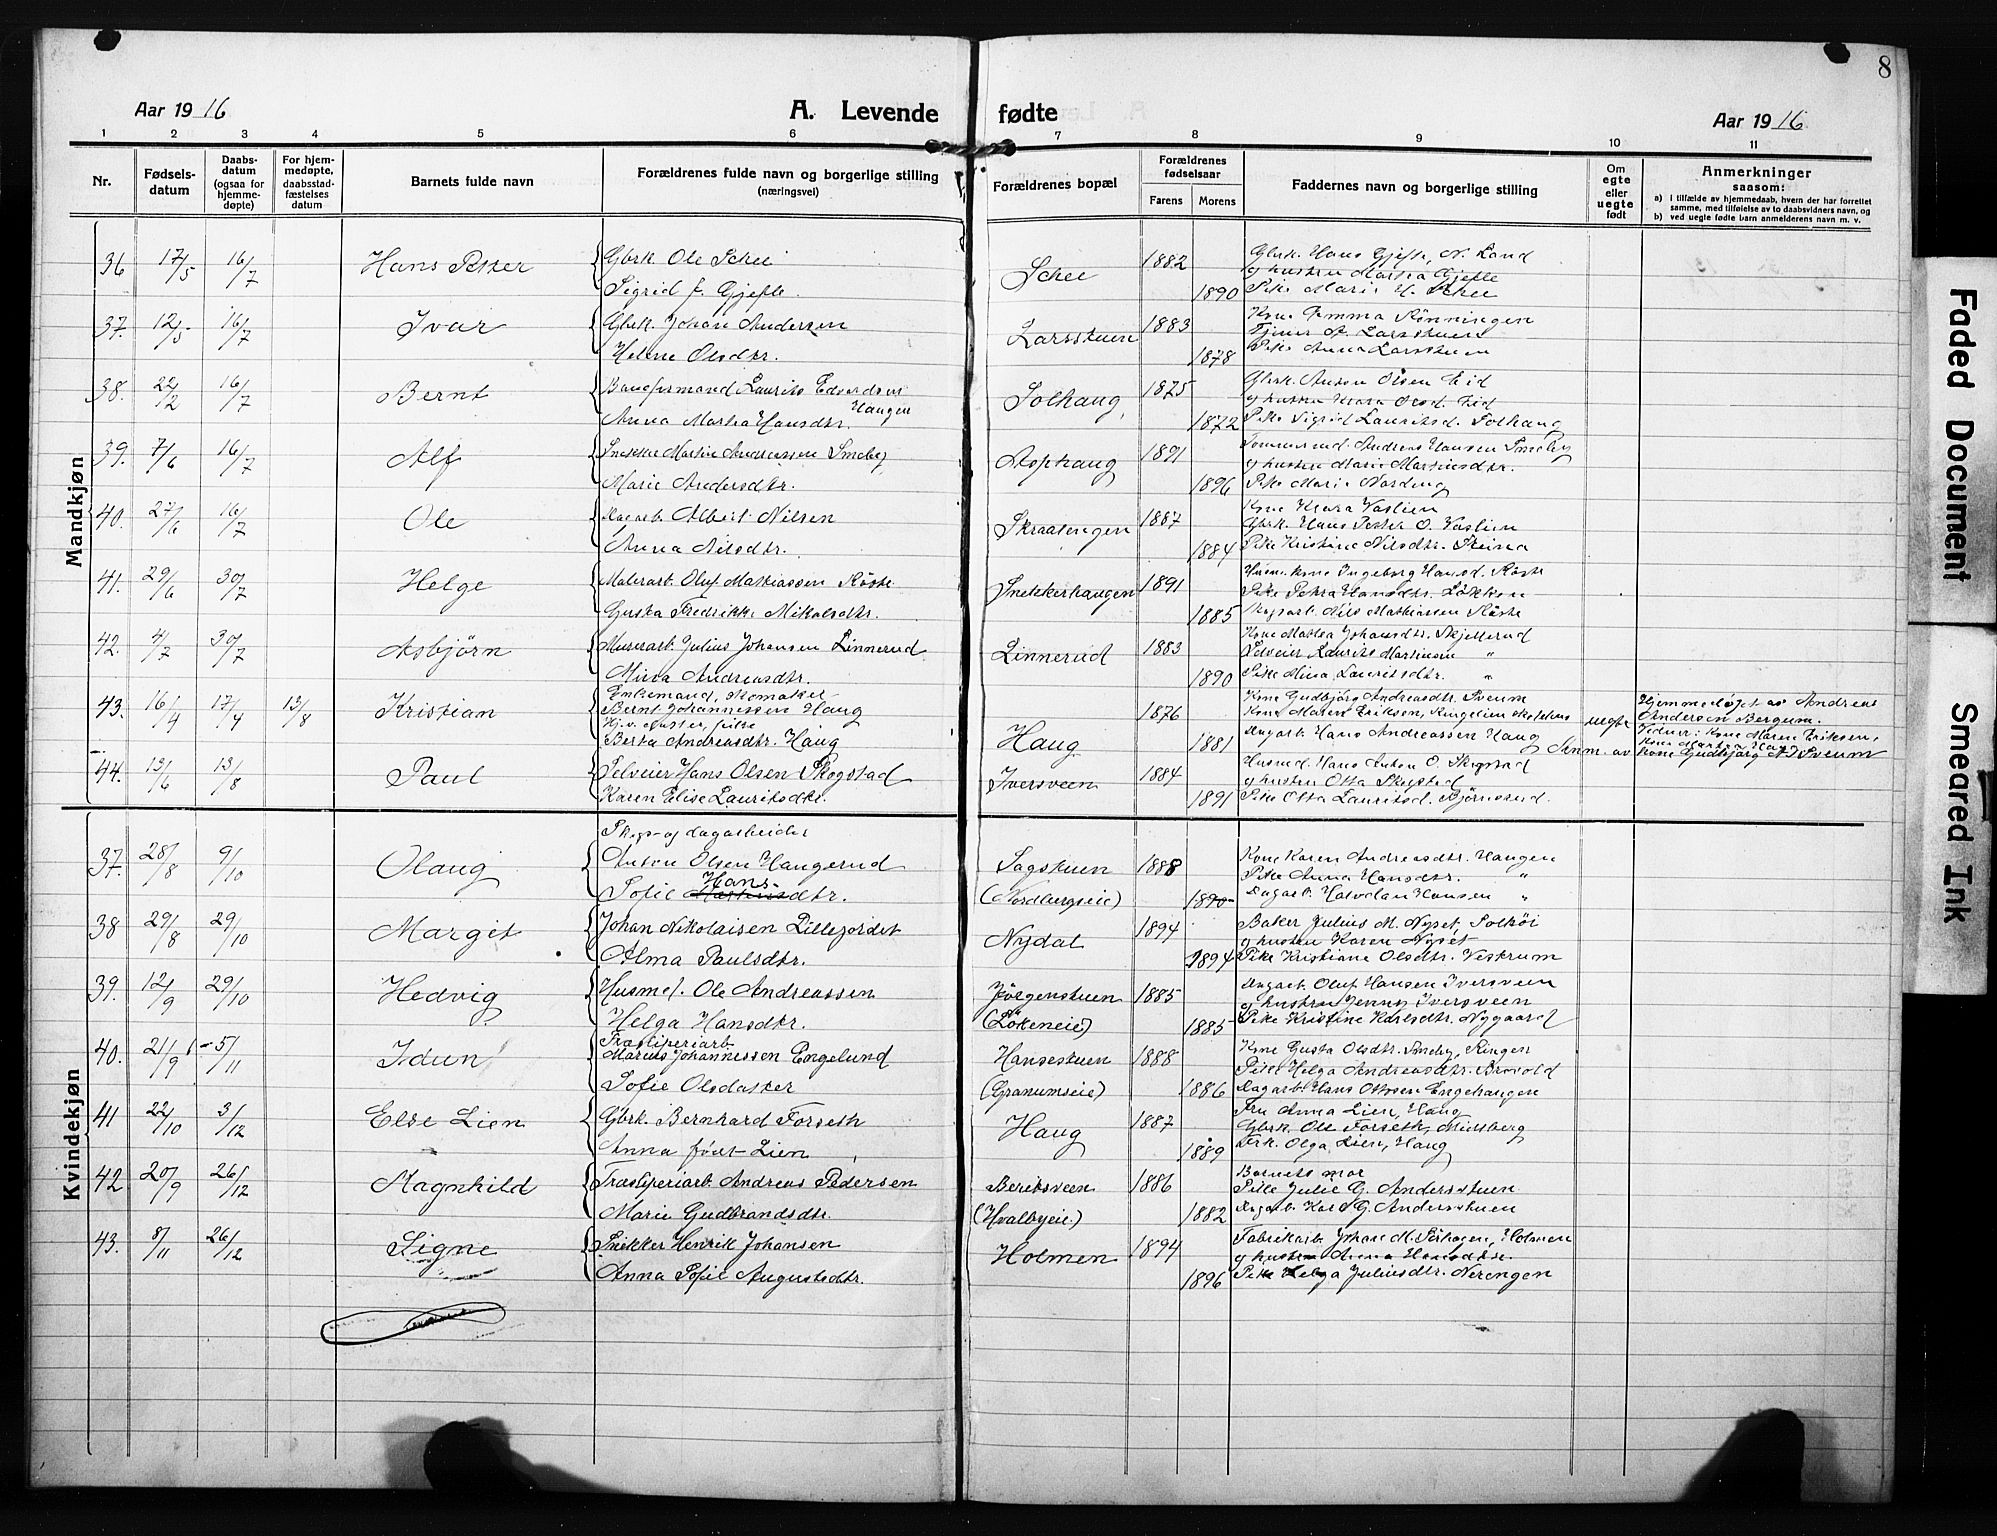 8
Aar 1916
A. Levende fødte
Aar 1916
1 2 3 4 5 6 7 8 9 10 11
Nr.
Fødselsdatum
Daabsdatum (ogsaa for hjemmedøpte)
For hjemmedøpte, daabsstadfæstelses datum
Barnets fulde navn
Forældrenes fulde navn og borgerlige stilling (næringsvei)
Forældrenes bopæl
Forældrenes fødselsaar
Farens Morens
Faddernes navn og borgerlige stilling
Om egte eller uegte født
Anmerkninger
saasom:
a) i tilfælde av hjemmedaab, hvem der har forrettet samme, med tilføielse av to daabsvidners navn, og
b) ved uegte fødte barn anmelderens navn m. v.
Mandkjøn
36 17/5 16/7 Hans Peter Gbrk. Ole Schee Schee 1882 Gbrk. Hans Gjefle, N. Land
og hustru Martha Gjefle
Sigrid f. Gjefle. 1890 Pike Marie H. Schee
37. 12/5 16/7 Ivar Gbrk. Johan Andersen Larsstuen 1883 Kone Remma Rønningen
Helene Olsdtr. 1878 Pike Anna Larsstuen
38. 22/2 16/7 Bernt Laurits Edvardsen Haugen Solhaug 1875 Gbrk. Anton Olsen Eid
Anna Martha Hansdtr. 1872 Pike Sigrid Lauritsd. Solhaug
39. 7/6 16/7 Alf Snekker Martin Andreassen Smeby Asphaug 1891 Andreas Hansen Smeby
og hustru Marie Martinsdtr.
Marie Andersdtr. 1896 Pike Marie Nordeng
40. 27/6 16/7 Ole Dagarb. Albert Nilsen Skraastengen 1887 Kone Klara Vaslien
Gbrk. Hans Peter O. Vaslien
Anna Nilsdtr. 1884 Pike Kristine Nilsdtr. Steina
41. 29/6 30/7 Helge Malerarb. Oluf Mathiassen Røste Snekkerhaugen 1891 Husm. kone Ingeborg Hansd. Røste
Pike Petra Hansdtr. Løkken
Gusta Fredrikke Mikalsdtr. 1885 Skogsarb. Nils Mathiassen Røste
42. 4/7 30/7 Asbjørn Murerarb. Julius Johansen Linnerud Linnerud 1883 Kone Mathea Johansdtr. Skjellerud
Selveier Laurits Martinsen "
Mina Andreasdtr. 1890 Pike Mina Lauritsdtr. "
43. 16/4 17/4 13/8 Kristian Enkemand, skomaker Bernt Johannessen Haug Haug 1876 Kone Gudbjørg Andreasdtr. Sveum
Kone Maren Eriksen, Ringelien
Berta Andreasdtr. Haug 1881 Dagarb. Hans Andreassen Haug
uegte
Anm. av
Hjemmedøpt av Andreas
Andersen Bergum.
Vidner: Kone Maren Eriksen,
Kone Gudbjørg A. Sveum
44. 13/6 13/8 Paul Selveier Hans Olsen Skogstad Iversveen 1884 Husmd. Hans Anton O. Skogstad
og hustru Otta Skogstad
Karen Elise Lauritsdtr. 1891 Pike Otta Lauritsd. Bjørnerud.
Kvindekjøn
37. 28/8 9/10 Olaug Skogs- og dagarbeider
Anton Olsen Haugerud Sagstuen 1888 Kone Karen Andreasdtr. Haugen
Pike Anna Hansdtr. "
Sofie Hansdtr. (Nordlungseie) 1890 Dagarb. Halvdan Hansen "
38 29/8 29/10 Margit Johan Nikolaisen Lillejordet Nydal 1894 Baker Julius M. Nyset, Solhøi
og hustru Karen Nyset
Alma Paulsdtr. 1894 Pike Kristiane Olsdtr. Vestrum
39. 12/9 29/10 Hedvig Husmd. Ole Andreassen Jørgenstuen 1885 Dagarb. Oluf Hansen Iversveen
og hustru Jenny Iversveen
Helga Hansdtr. (Løkeneie) 1885 Pike Kristine Karlsdtr. Nygaard
40. 21/9 5/11 Idun Træsliperiarb.
Marius Johannessen Engelund Hansestuen 1888 Kone Gusta Olsdtr. Smeby, Ringen
Pike Helga Andreasdtr. Brovold
Sofie Olsdatter (Granumseie) 1886 Dagarb. Hans Ottosen Engehaugen
41 22/10 3/12 Else Lien Gbrk. Bernhard Forseth Haug 1887 Fru Anna Lien, Haug
Gbrk. Ole Forseth, Milsberg
Anna født Lien 1889 Frk. Olga Lien, Haug
42 20/9 26/12 Magnhild Træsliperiarb. Andreas Pedersen Beritsveen 1886 Barnets mor
Pike Julie G. Andersstuen
Marie Gudbrandsdtr. (Hvalbyeie) 1882 Dagarb. Karl G. Andersstuen
43. 8/11 26/12 Signe Snekker Henrik Johansen Holmen 1894 Fabrikarb. Johan M. Sørhagen, Holmen
og hustru Anna Hansdtr.
Anna Sofie Augustsdtr. 1896 Pike Helga Juliusdtr. Nerengen
Faded Document
Smeared Ink